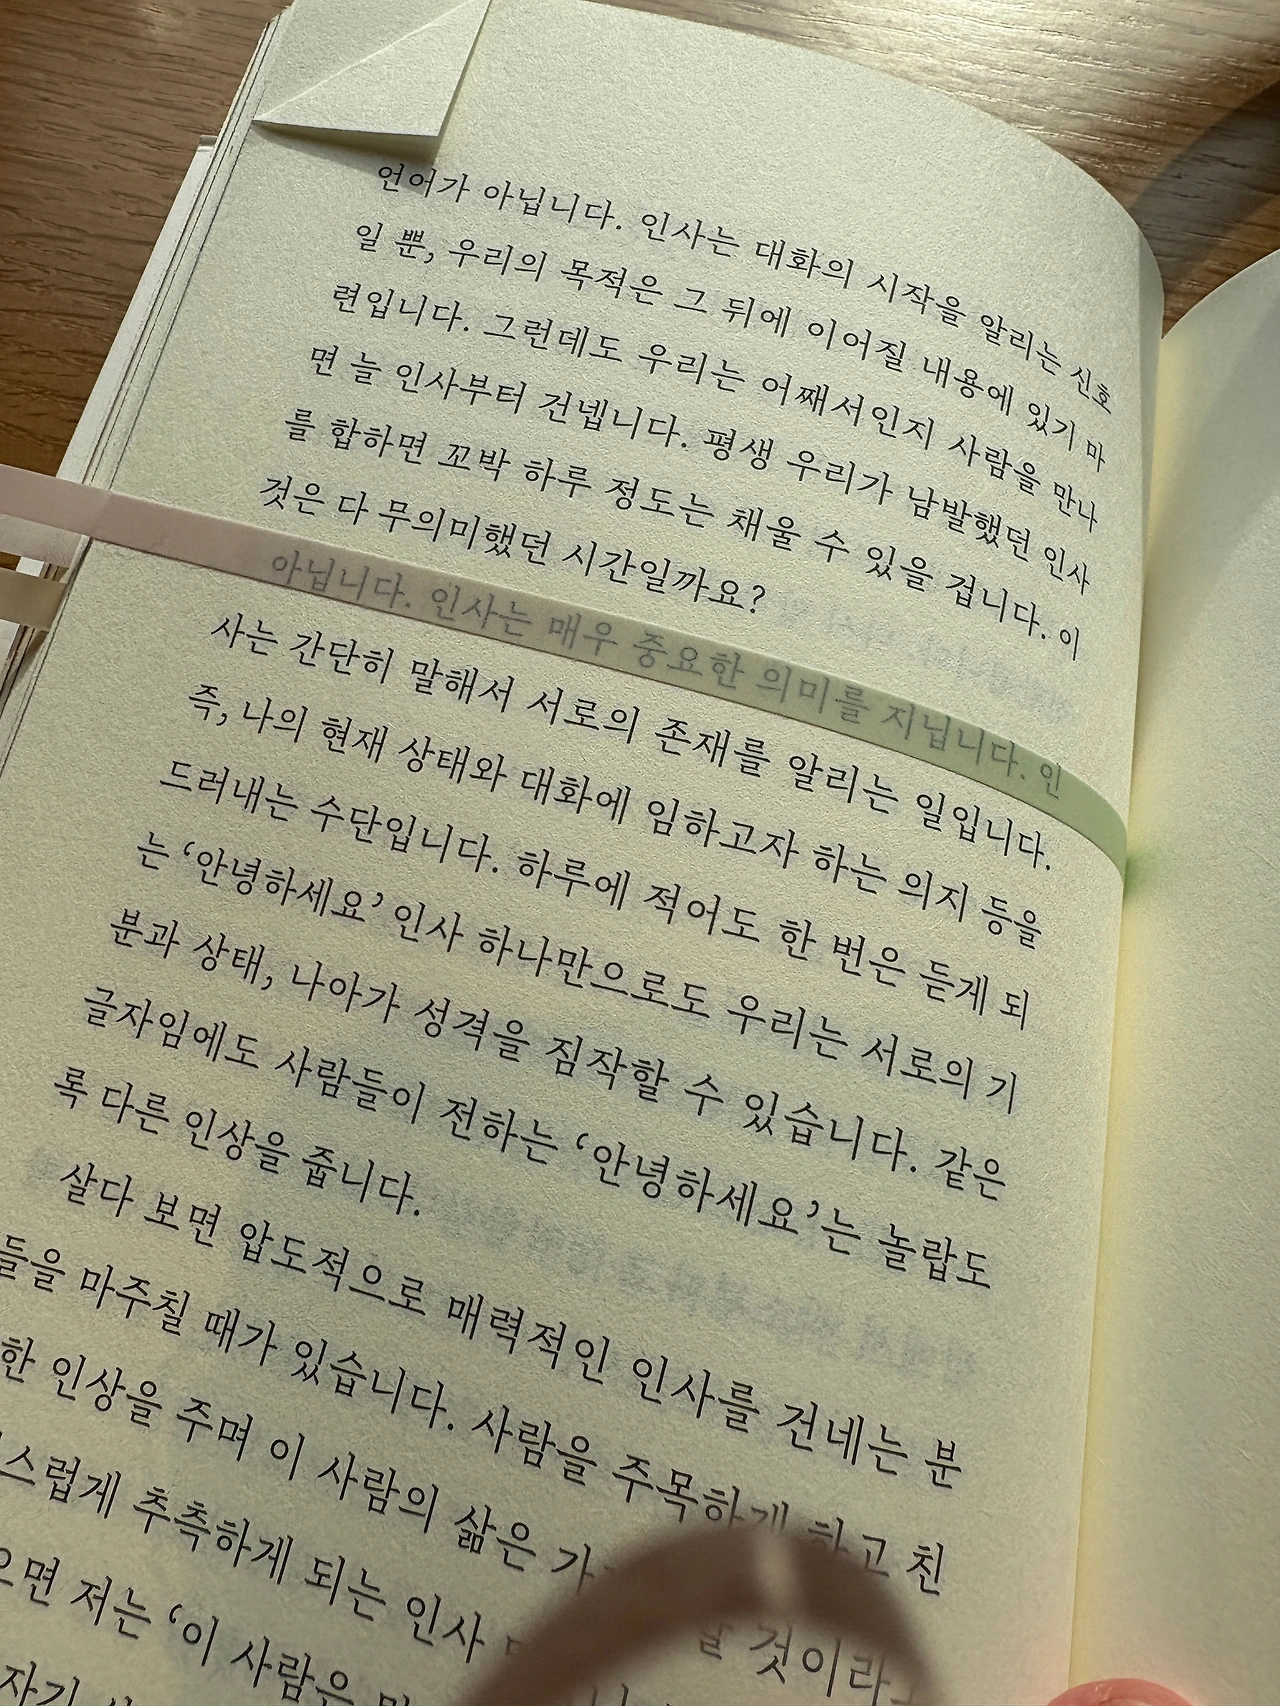 언어가 아닙니다. 인사는 대화의 시작을 알리는 신호
일 뿐, 우리의 목적은 그 뒤에 이어질 내용에 있기 마
련입니다. 그런데도 우리는 어째서인지 사람을 만나
면 늘 인사부터 건넵니다. 평생 우리가 남발했던 인사
를 합하면 꼬박 하루 정도는 채울 수 있을 겁니다. 이
것은 다 무의미했던 시간일까요?
아닙니다. 인사는 매우 중요한 의미를 지닙니다. 인
사는 간단히 말해서 서로의 존재를 알리는 일입니다.
즉, 나의 현재 상태와 대화에 임하고자 하는 의지 등을
드러내는 수단입니다. 하루에 적어도 한 번은 듣게 되
는 ‘안녕하세요’ 인사 하나만으로도 우리는 서로의 기
분과 상태, 나아가 성격을 짐작할 수 있습니다. 같은
글자임에도 사람들이 전하는 ‘안녕하세요’는 놀랍도
록 다른 인상을 줍니다.
살다 보면 압도적으로 매력적인 인사를 건네는 분
들을 마주칠 때가 있습니다. 사람을 주목하게 하고 친
한 인상을 주며 이 사람의 삶은
스럽게 추측하게 되는 인사 것이라
으면 저는 ‘이 사람은